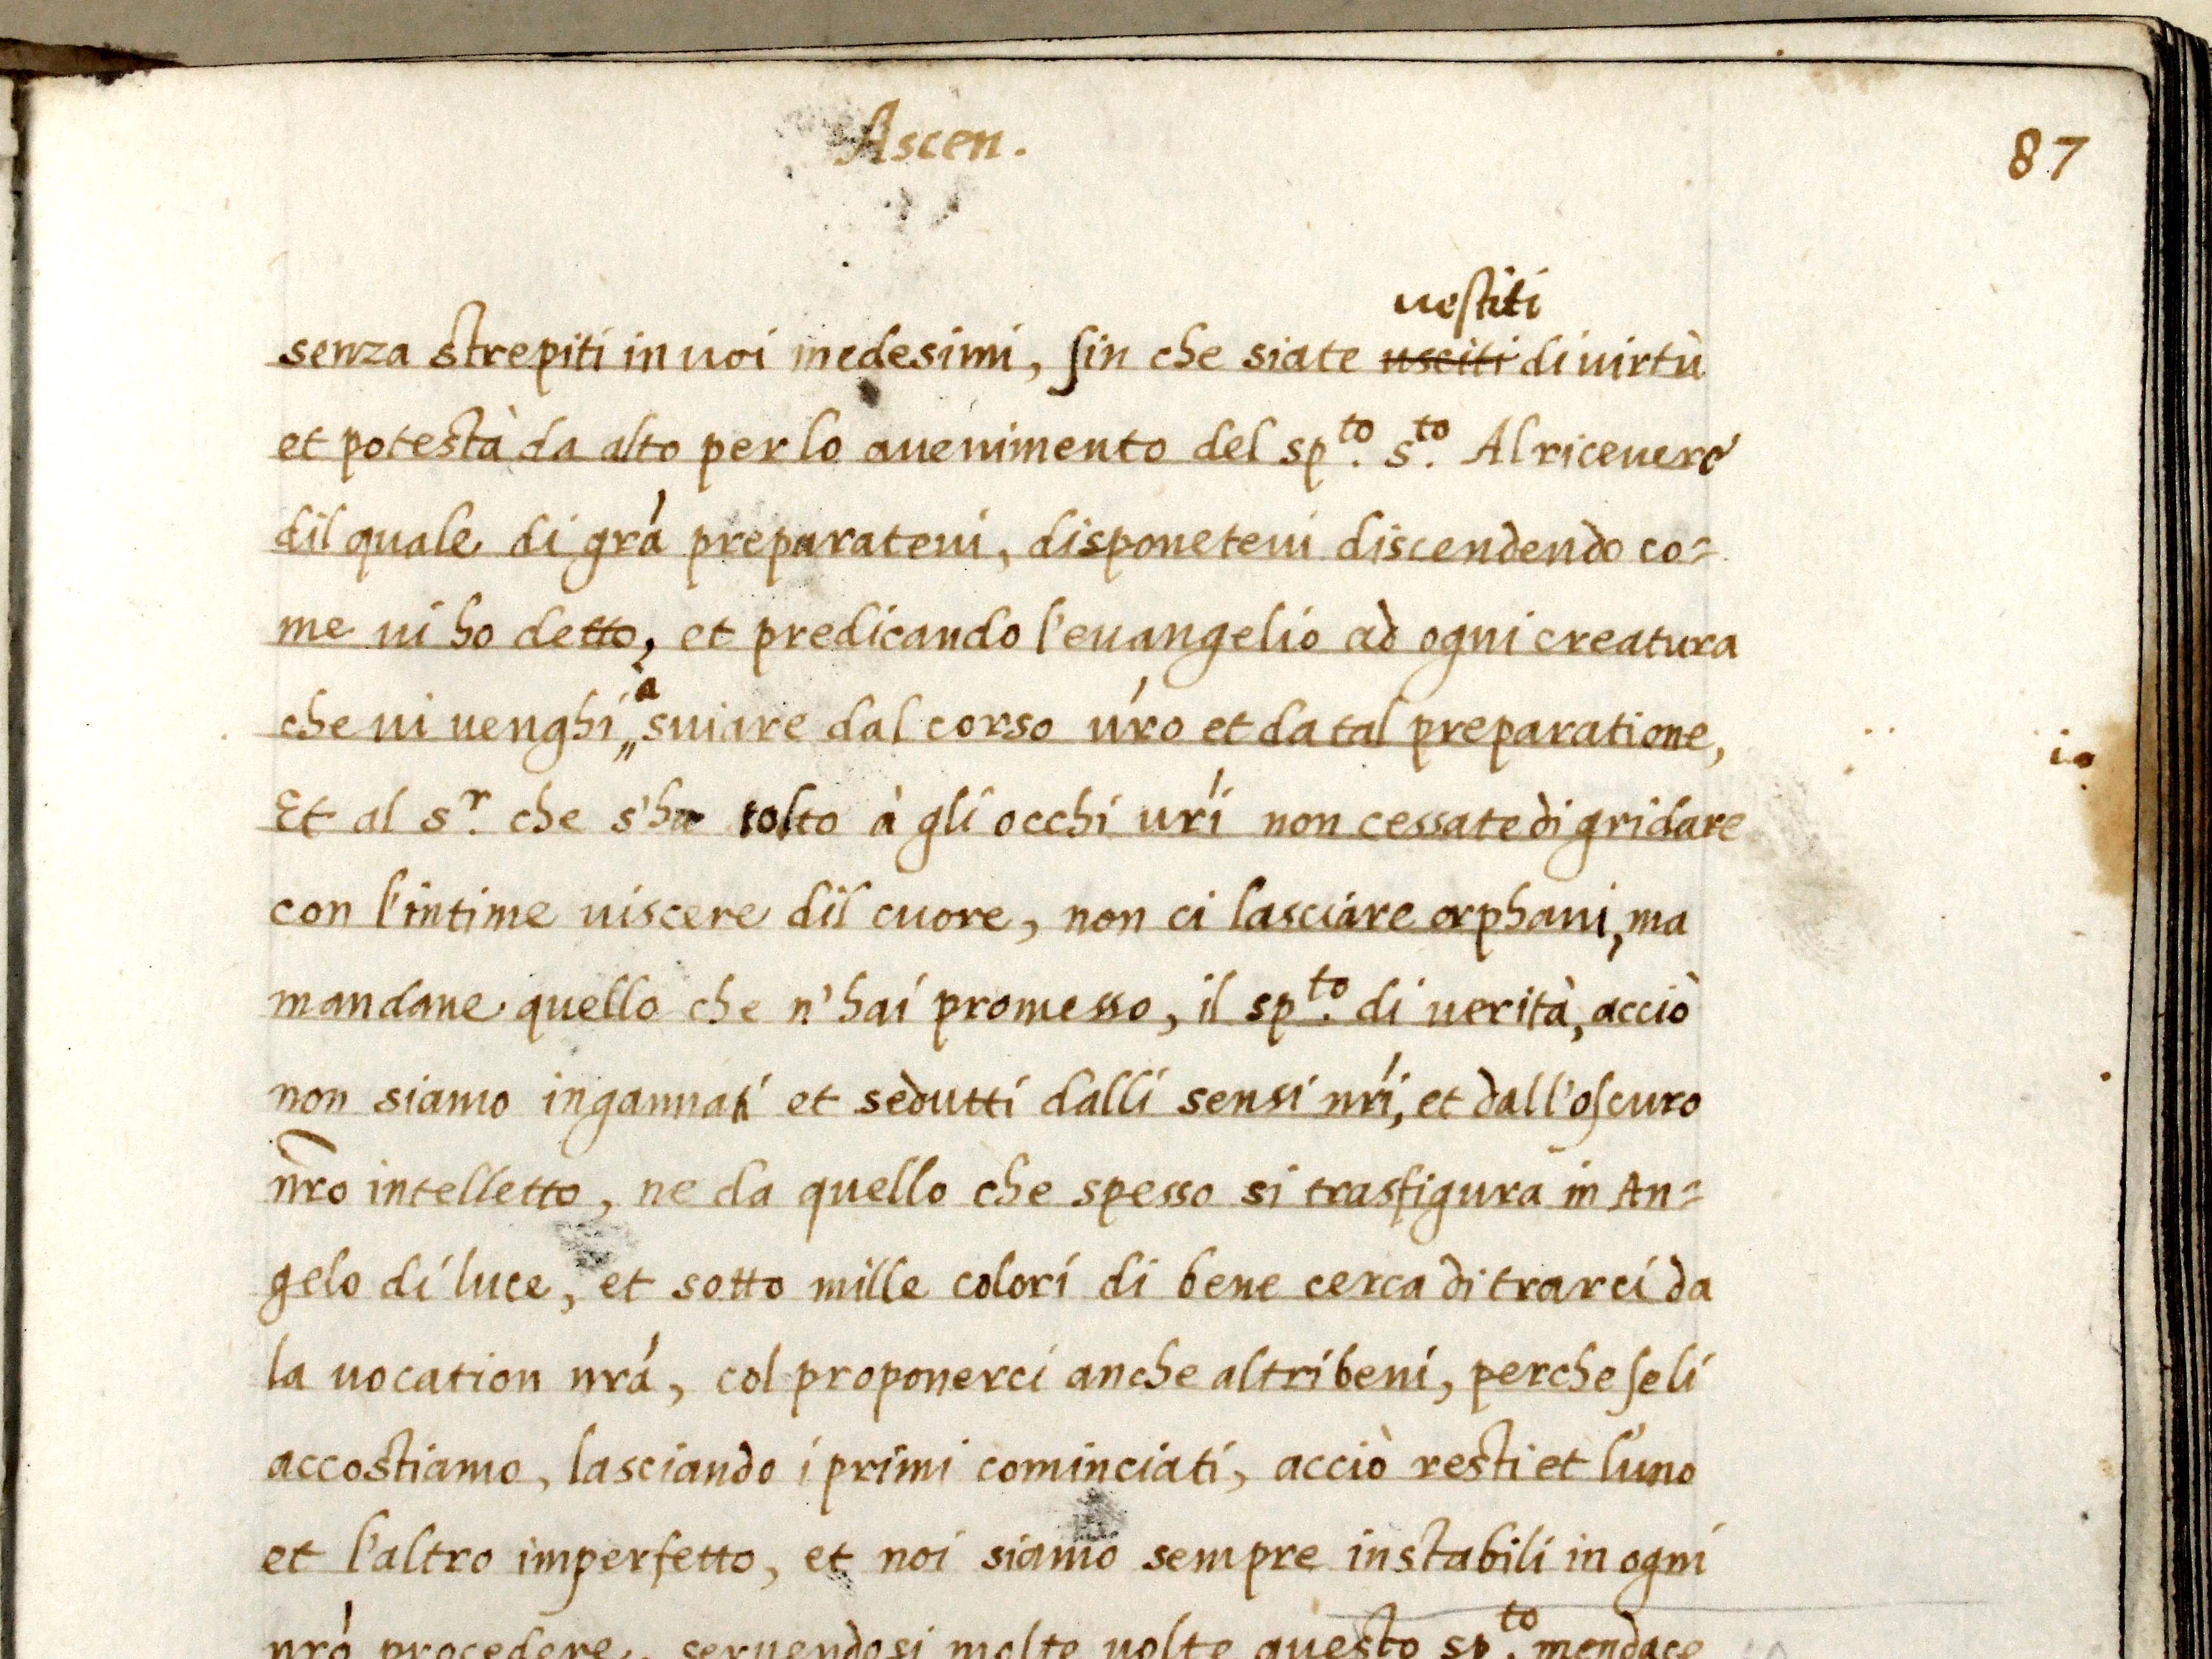 Ascen.
87
uestiti
senza strepiti in uoi medesimi, sin che siate usciti di uirtù
et potestà da alto per lo auenimento del sp.to s.to Al riceuere
dil quale di grá preparateui, disponeteui discendendo co=
me ui ho detto, et predicando l'euangelio ad ogni creatura
che ui uenghi à suiare dal corso úro et da tal preparatione,
Et al s.r che s'ha tolto à gli occhi urí non cessate di gridare
con l'intime uiscere dil cuore, non ci lasciare orphani, ma
mandane quello che n'hai promesso, il sp.to di uerità, acciò
non siamo ingannati et sedutti dalli sensi nrí, et dall'oscuro
nr̃o intelletto, ne da quello che spesso si trasfigura in An=
gelo di luce, et sotto mille colori di bene cerca di trarci da
la uocation nrá, col proponerci anche altri beni, perche se li
accostiamo, lasciando i primi cominciati, acciò resti et l'uno
et l'altro imperfetto, et noi siamo sempre instabili in ogni
nró procedere, seruendosi molte uolte questo sp.to mendace